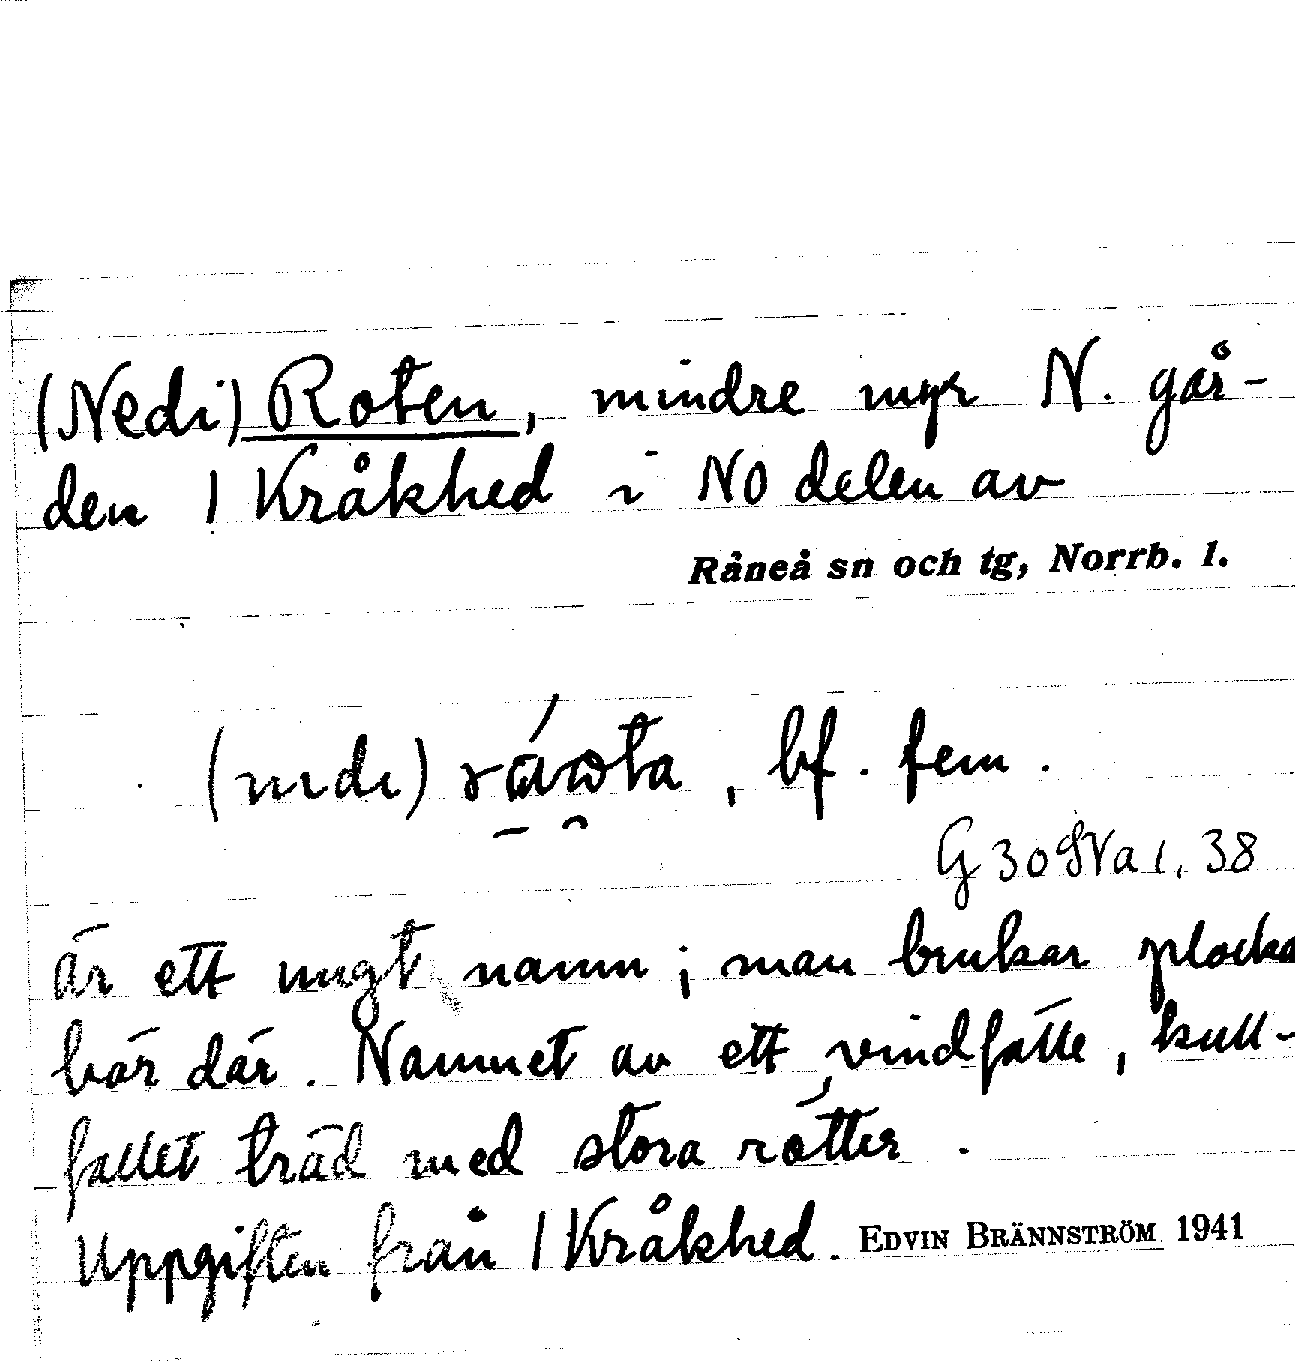 (Nedi) Roten, mindre myr N. går-
den 1 Kråkhed i NO delen av
Råneå sn och tg, Norrb. l.
(nɪdɪ) , bf. fem.
G 30 SVa 1, 38
är ett nygt namn; man brukar plocka
bär där. Namnet av ett vindfälle, kull-
fallet träd med stora rötter.
Uppgiften från 1 Kråkhed. EDVIN BRÄNNSTRÖM 1941